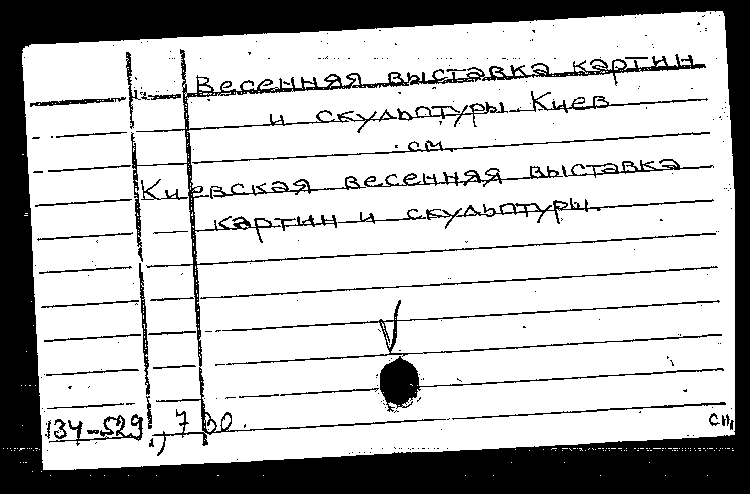 Весенняя выставка картин
и скульптуры. Киев
см.
Киевская весенняя выставка
картин и скульптуры.
134-529, 700.